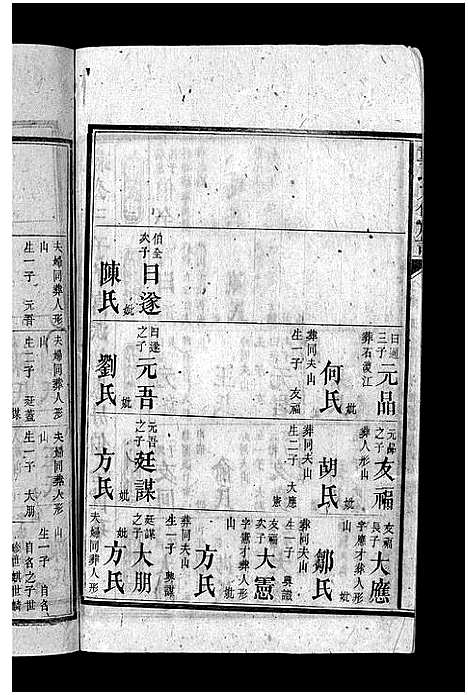 曰遇三子 元品
葬石渡江
何氏 妣
葬同夫山
生一子 友福
伯全次子 日遂
陳氏 妣
曰遂之子 元吾
劉氏 妣
元品之子 友福
葬人形山
胡氏 妣
葬同夫山
生二子 大應 憲
元吾之子 廷謀
方氏 妣
友福長子 大應
字應才葬人形山
鄒氏 妣
葬同夫山
生一子 興識
友福次子 大憲
字憲才葬人形山
方氏 妣
葬同夫山
生一子 興謀
廷謀之子 大朋
方氏 妣
夫婦同葬人形
夫婦同葬人形
山
生一子 元吾
夫婦同葬人形
山
生二子 廷蓋 謀
夫婦同葬人形
山
生一子 大朋
山
生一子 自名
自名之子世